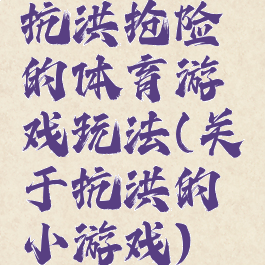 抗洪抢险
的体育游
戏玩法(关
于抗洪的
小游戏)